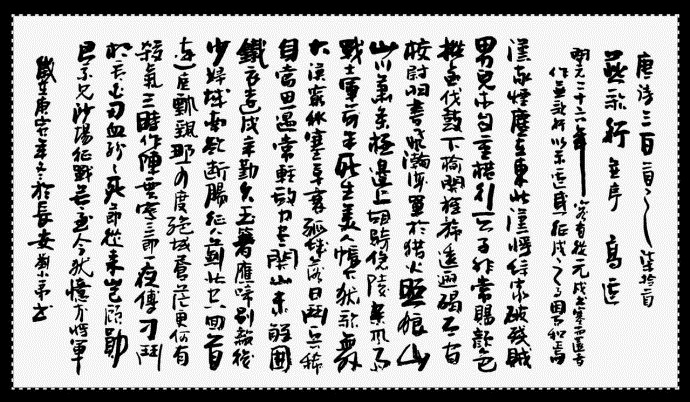 唐诗三百首 柒拾首
燕歌行 並序 高適
開元二十六年 客有從元戎出塞而還者
作燕歌行以示適 感征戍之事因而和焉
漢家煙塵在東北漢將辞家破殘賊
男兒本自重橫行天子非常賜顏色
摐金伐鼓下榆関旌旆逶迤碣石間
校尉羽書飛瀚海單于猎火照狼山
山川蕭條極邊土胡騎憑陵雜風雨
戰士軍前半死生美人帳下猶歌舞
大漠窮秋塞草衰孤城落日鬥兵稀
身當恩遇常輕敵力盡関山未解圍
鐵衣遠戍辛勤久玉箸應啼別離後
少婦城南欲斷腸征人薊北空回首
邊庭飄颻那可度絕域蒼茫更何有
殺氣三時作陣雲寒聲一夜傳刁鬥
相看白刃血紛紛死節從來豈顧勛
君不見沙場征戰苦至今猶憶李將軍
歲在庚寅年冬於長安